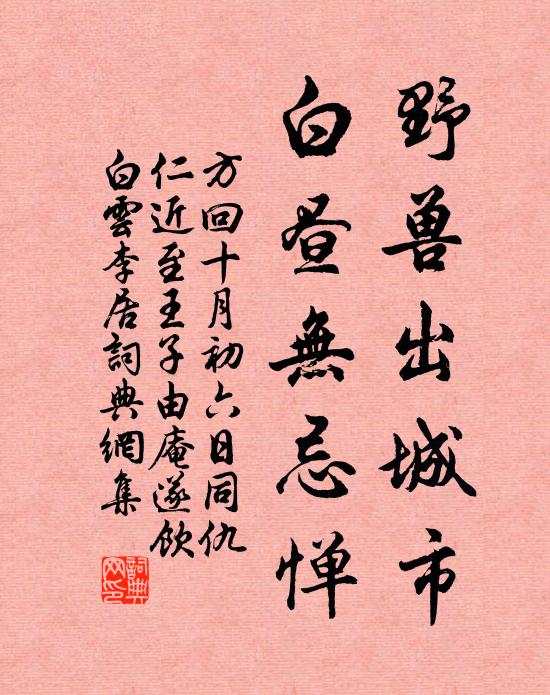 野兽出城市
白昼無忌惮
方回十月初六日同仇
仁近至王子由庵遂飲
白雲李居詞典網集
詞典
网印